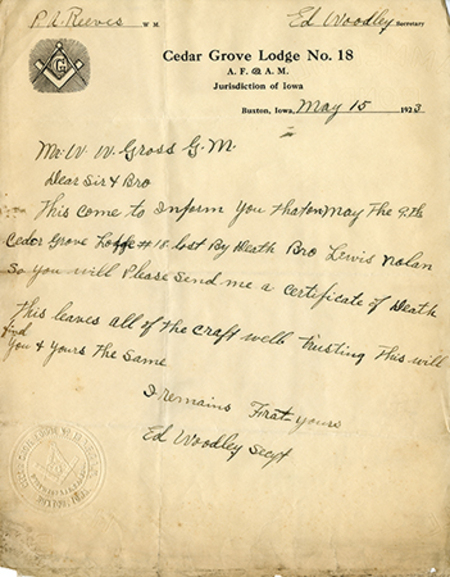 P. A. Reeves W. M. Ed Woodley Secretary
G
Cedar Grove Lodge No. 18
A. F. & A. M.
Jurisdiction of Iowa
Buxton, Iowa, May 15 1923
Mr. W. W. Gross G. M.
Dear Sir & Bro
This come to Inform You that on May The 9th
Cedor Grove Lodge #18 lost By Death Bro Lewis Nolan
So You will Please Send me a Certificate of Death
This leaves all of the craft well trusting This will
find
You & Yours The Same
I remains Frat-yours
Ed Woodley Secy